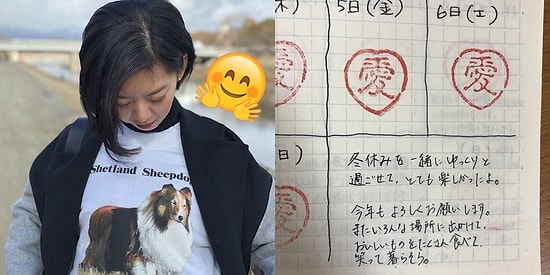 Shetland Sheepdo
木)
5日(金)
6日(土)
愛
愛
日)
冬休みを一緒にゆっくりと
過ごせて、とても楽しかったよ。
今年もよろしくお願いします。
またいろんな場所に出かけて、
おいしいものをたくさん食べて、
笑って暮らそう。